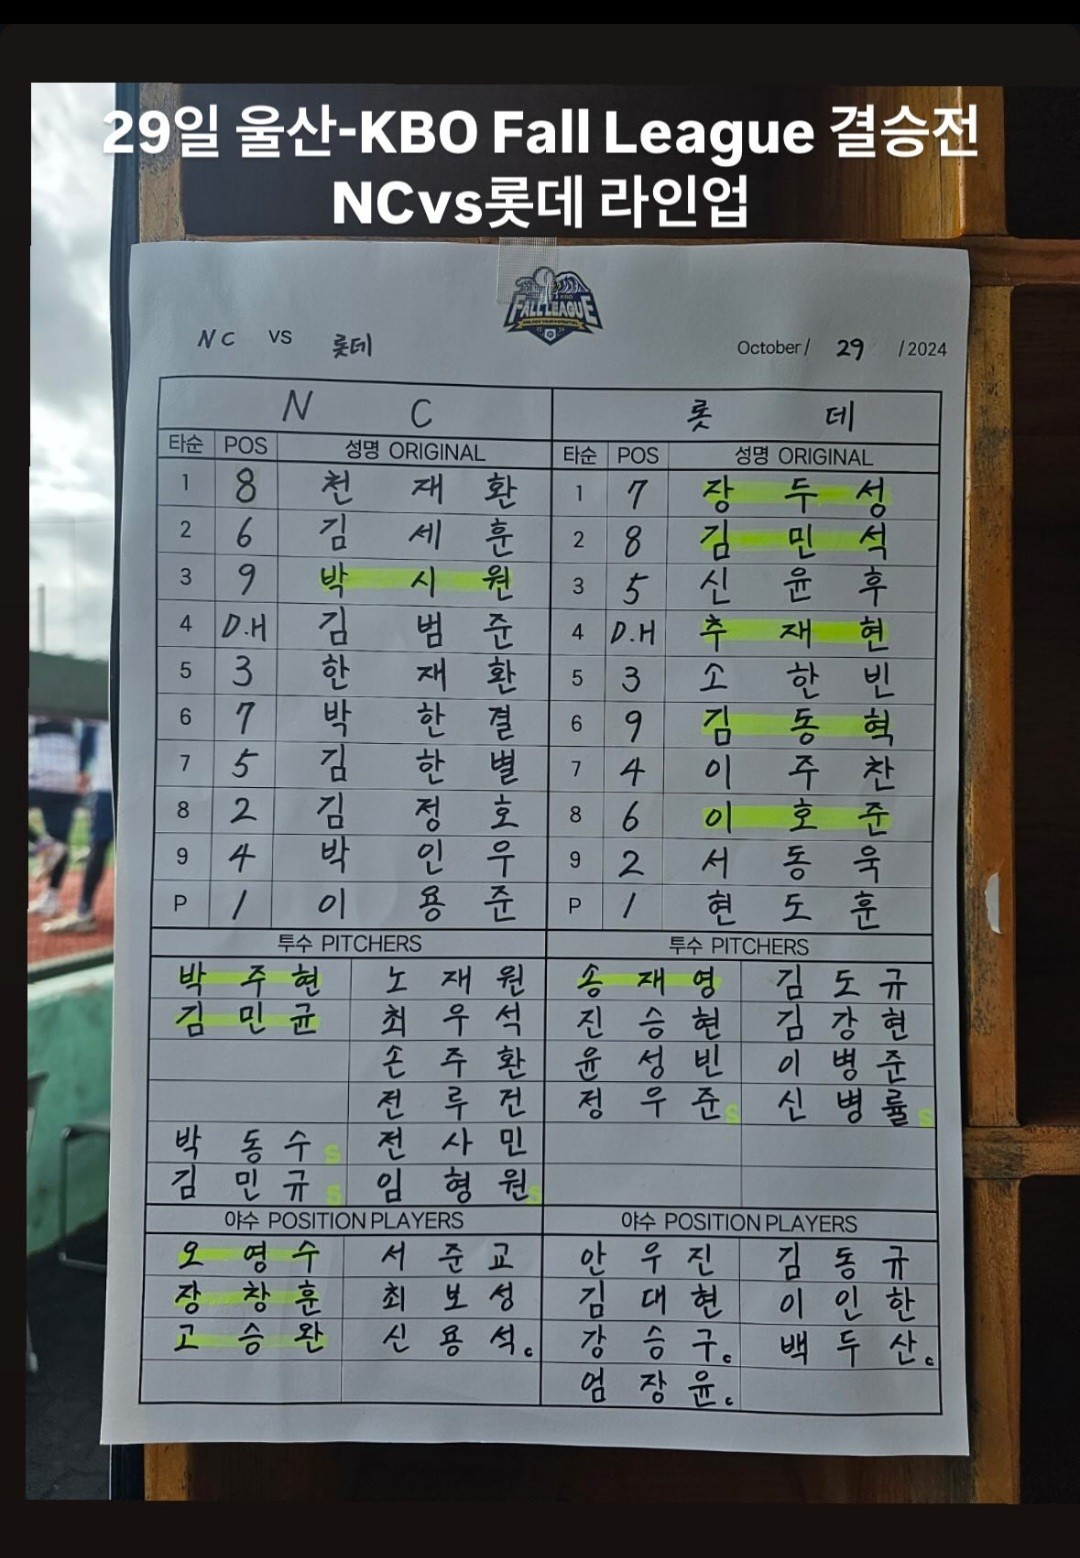 29일 울산-KBO Fall League 결승전
NCvs롯데 라인업
FALL LEAGUE
NC VS 롯데 October/ 29 /2024
N C 롯 데
타순 POS 성명 ORIGINAL 타순 POS 성명 ORIGINAL
1 8 천 재 환 1 7 장 두 성
2 6 김 세 훈 2 8 김 민 석
3 9 박 시 원 3 5 신 윤 후
4 D.H 김 범 준 4 D.H 추 재 현
5 3 한 재 환 5 3 소 한 빈
6 7 박 한 결 6 9 김 동 혁
7 5 김 한 별 7 4 이 주 찬
8 2 김 정 호 8 6 이 호 준
9 4 박 인 우 9 2 서 동 욱
P 1 이 용 준 P 1 현 도 훈
투수 PITCHERS 투수 PITCHERS
박 주 현 노 재 원 송 재 영 김 도 규
김 민 균 최 우 석 진 승 현 김 강 현
손 주 환 윤 성 빈 이 병 준
전 루 건 정 우 준 S 신 병 률 S
박 동 수 S 전 사 민
김 민 규 S 임 형 원 S
야수 POSITION PLAYERS 야수 POSITION PLAYERS
오 영 수 서 준 교 안 우 진 김 동 규
장 창 훈 최 보 성 김 대 현 이 인 한
고 승 완 신 용 석 c 강 승 구 c 백 두 산 c
엄 장 윤 c